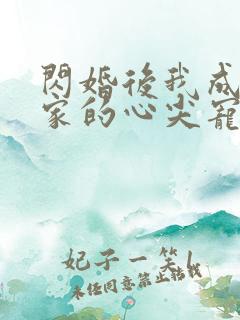 閃婚後我成
家的心尖寵
妃子一笑!
未任同意禁止转载